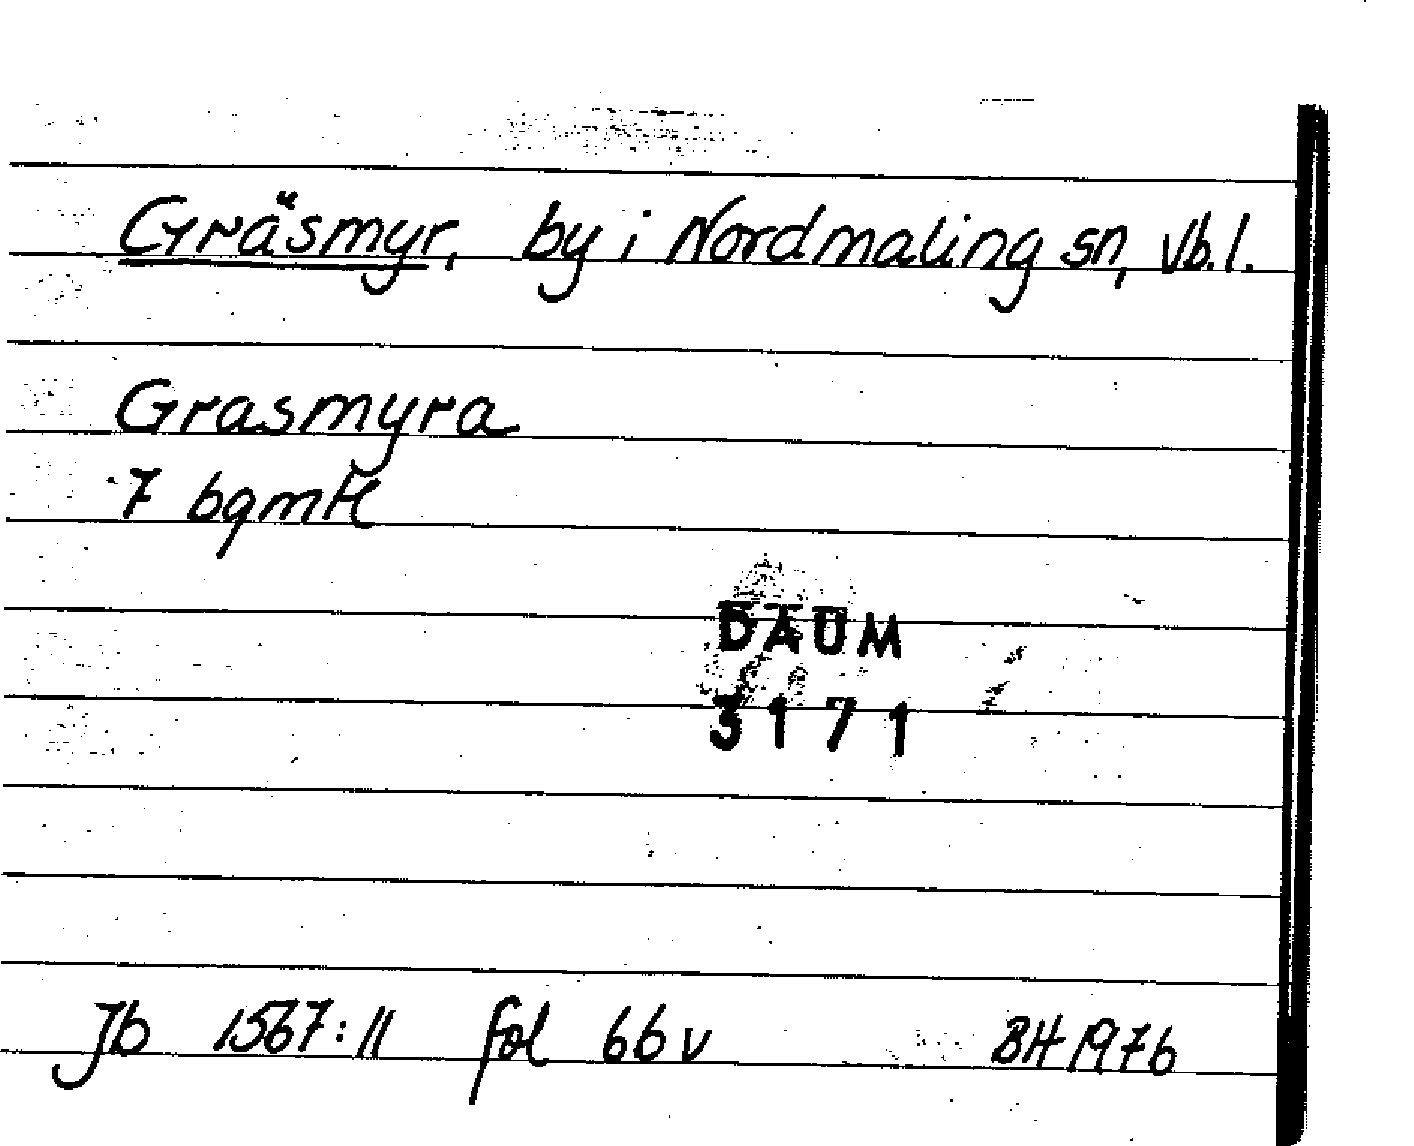 Gräsmyr, by i Nordmaling sn, Vb.l.
Grasmyra
7 bgmk
DAUM
3171
Jb 1567:11 fol 66 v BH 1976